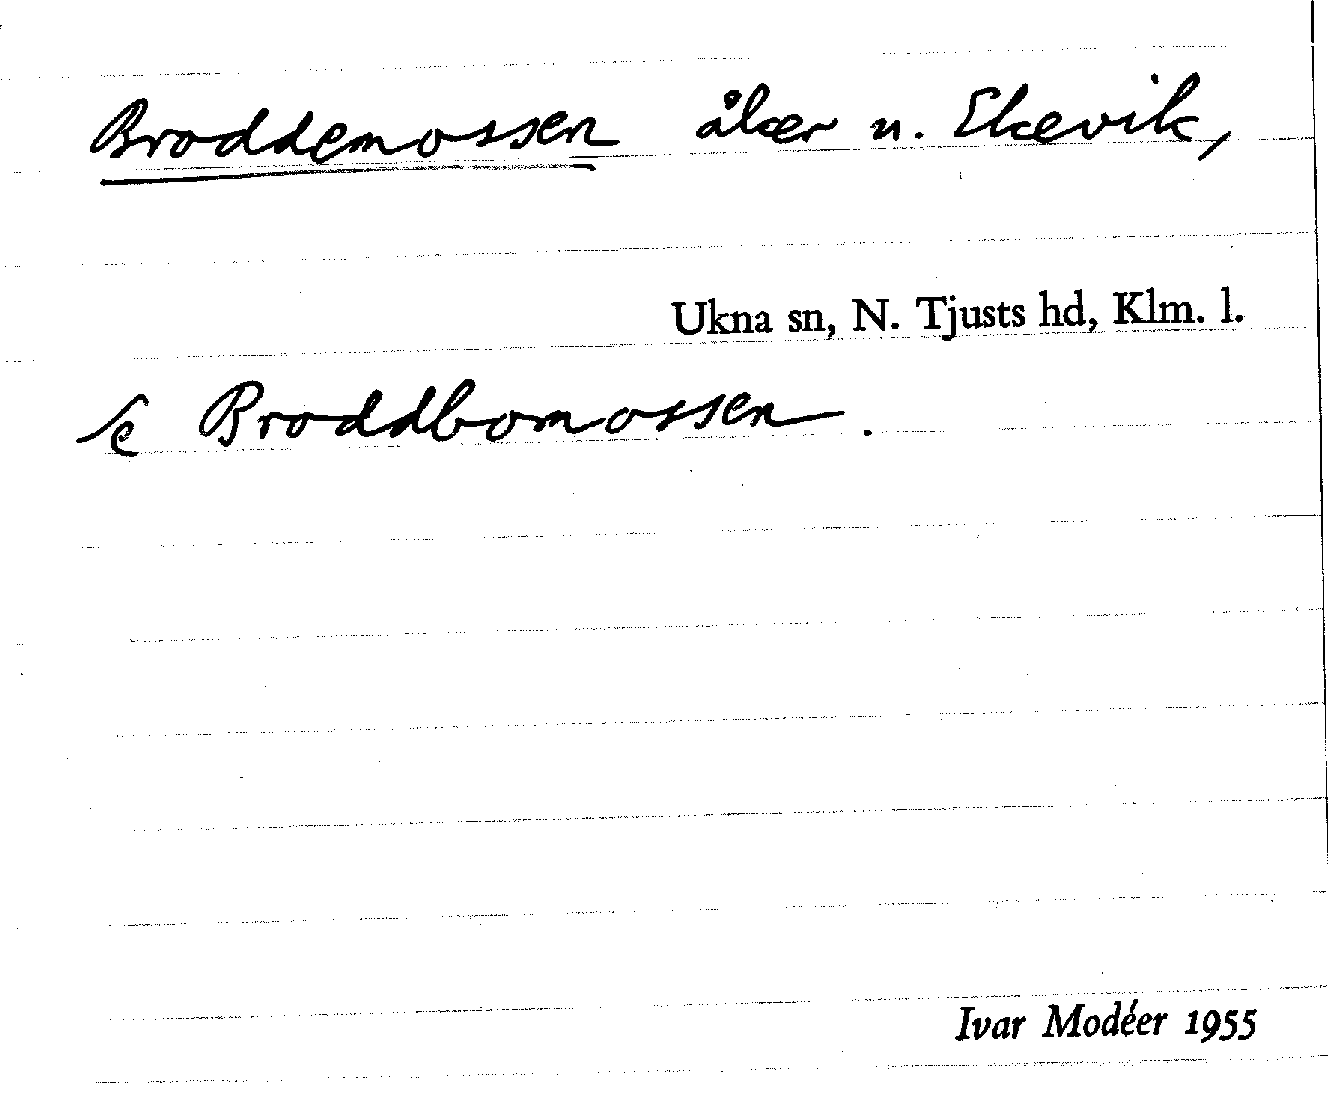 Broddemossen åker u. Ekevik,
Ukna sn, N. Tjusts hd, Klm. l.
se Broddbomossen.
Ivar Modéer 1955